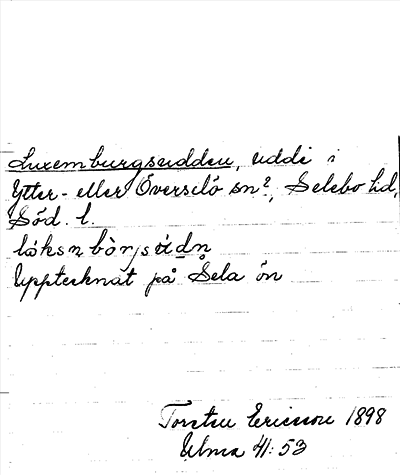 Luxemburgsudden, udde i
Ytter- eller Överselö sn?, Selebo hd,
Söd. l.
Upptecknat på Selaön
Torsten Ericsson 1898
Ulma 41:53